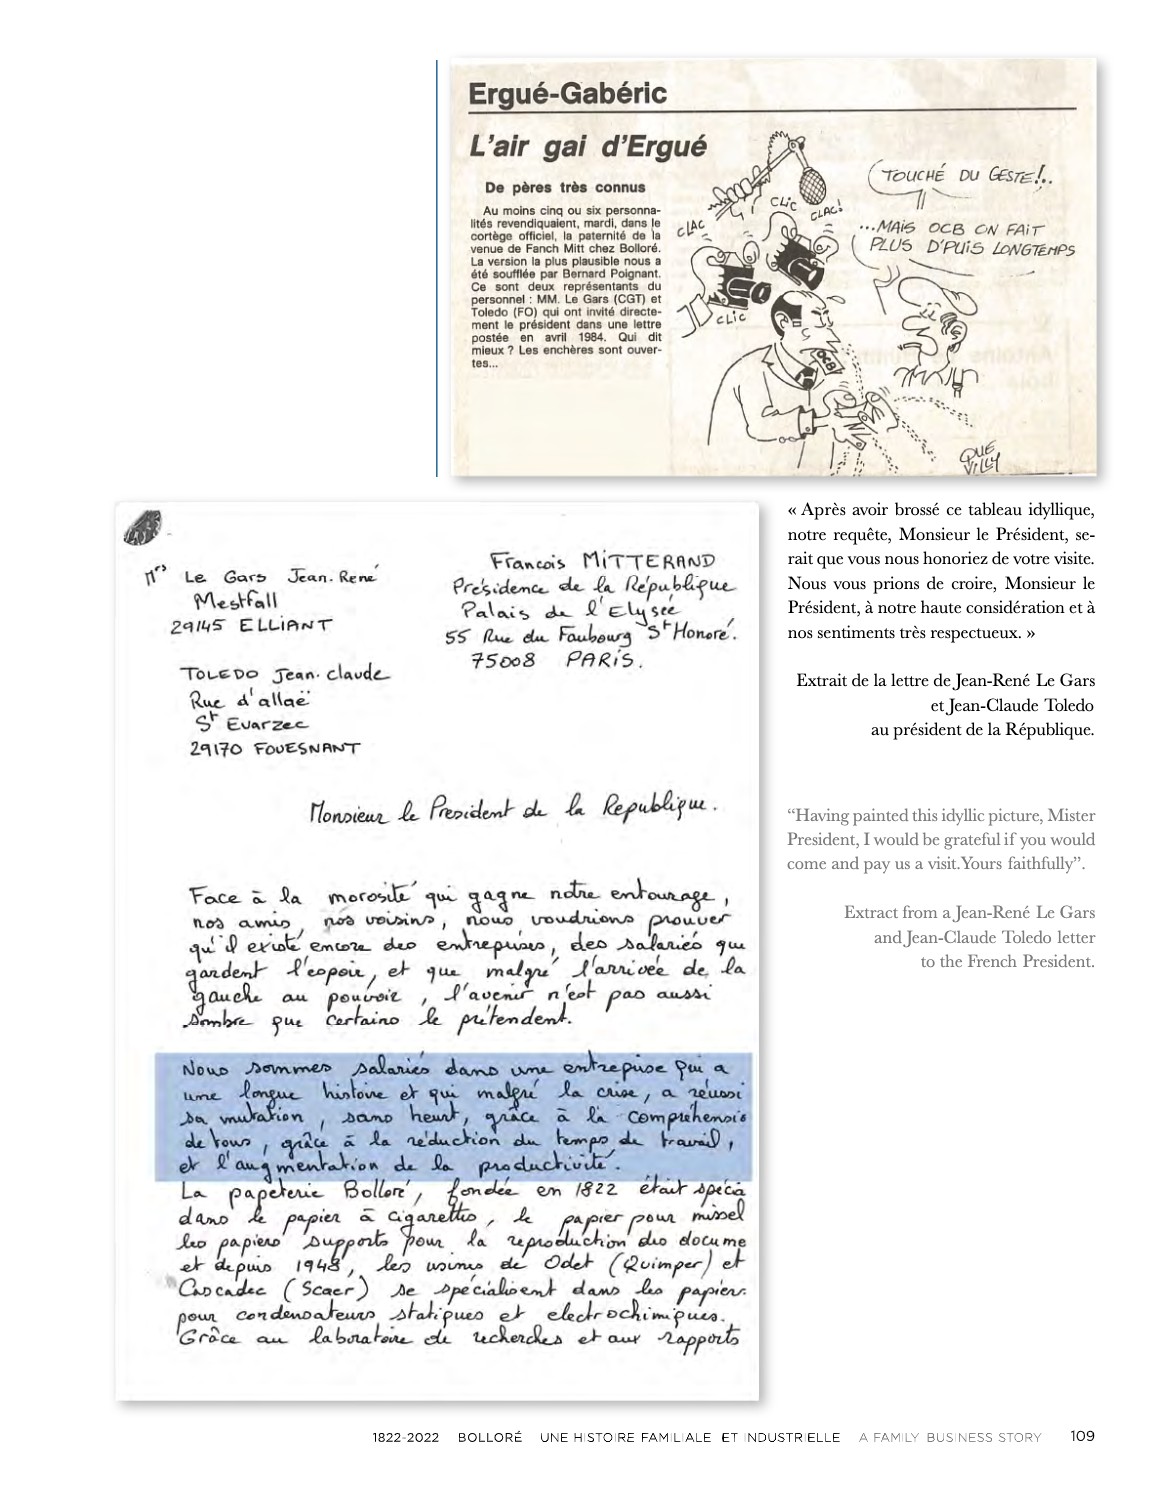 Ergué-Gabéric
L'air gai d'Ergué
De pères très connus
Au moins cinq ou six persona-
lités revendiquaient, mardi, dans le
cortège officiel, la paternité de la
venue de Fanch Mitt chez Bolloré.
La version la plus plausible nous a
été soufflée par Bernard Poignant.
Ce sont deux représentants du
personnel : MM. Le Gars (CGT) et
Toledo (FO) qui ont invité directe-
ment le président dans une lettre
postée en avril 1984. Qui dit
mieux ? Les enchères sont ouver-
tes...
TOUCHÉ DU GESTE!..
...MAIS OCB ON FAIT
PLUS D'PUIS LONGTEMPS
CLAC
CLIC
CLAC!
CLIC
OCB
QUE
VILLY
Mrs Le Gars Jean-René
Mestfall
29145 ELLIANT
TOLEDO Jean-claude
Rue d'allaë
St Evarzec
29170 FOUESNANT
Francois MITTERAND
Présidence de la République
Palais de l'Elysée
55 Rue du Faubourg St Honoré.
75008 PARIS.
Monsieur le President de la Republique.
Face à la morosité qui gagne notre entourage,
nos amis, nos voisins, nous voudrions prouver
qu'il existe encore des entreprises, des salariés qui
gardent l'espoir, et que malgré l'arrivée de la
gauche au pouvoir, l'avenir n'est pas aussi
sombre que certains le prétendent.
Nous sommes salariés dans une entreprise qui a
une longue histoire et qui malgré la crise, a réussi
sa mutation, sans heurt, grâce à la compréhensio
de tous, grâce à la réduction du temps de travail,
et l'augmentation de la productivité.
La papeterie Bolloré, fondée en 1822 était spécia
dans le papier à cigarettes, le papier pour missel
les papiers supports pour la reproduction des docume
et depuis 1948, les usines de Odet (Quimper) et
Cascadec (Scaer) se spécialisent dans les papiers
pour condensateurs statiques et electrochimiques.
Grâce au laboratoire de recherches et aux rapports
« Après avoir brossé ce tableau idyllique,
notre requête, Monsieur le Président, se-
rait que vous nous honoriez de votre visite.
Nous vous prions de croire, Monsieur le
Président, à notre haute considération et à
nos sentiments très respectueux. »
Extrait de la lettre de Jean-René Le Gars
et Jean-Claude Toledo
au président de la République.
“Having painted this idyllic picture, Mister
President, I would be grateful if you would
come and pay us a visit.Yours faithfully”.
Extract from a Jean-René Le Gars
and Jean-Claude Toledo letter
to the French President.
1822-2022 BOLLORÉ UNE HISTOIRE FAMILIALE ET INDUSTRIELLE A FAMILY BUSINESS STORY 109